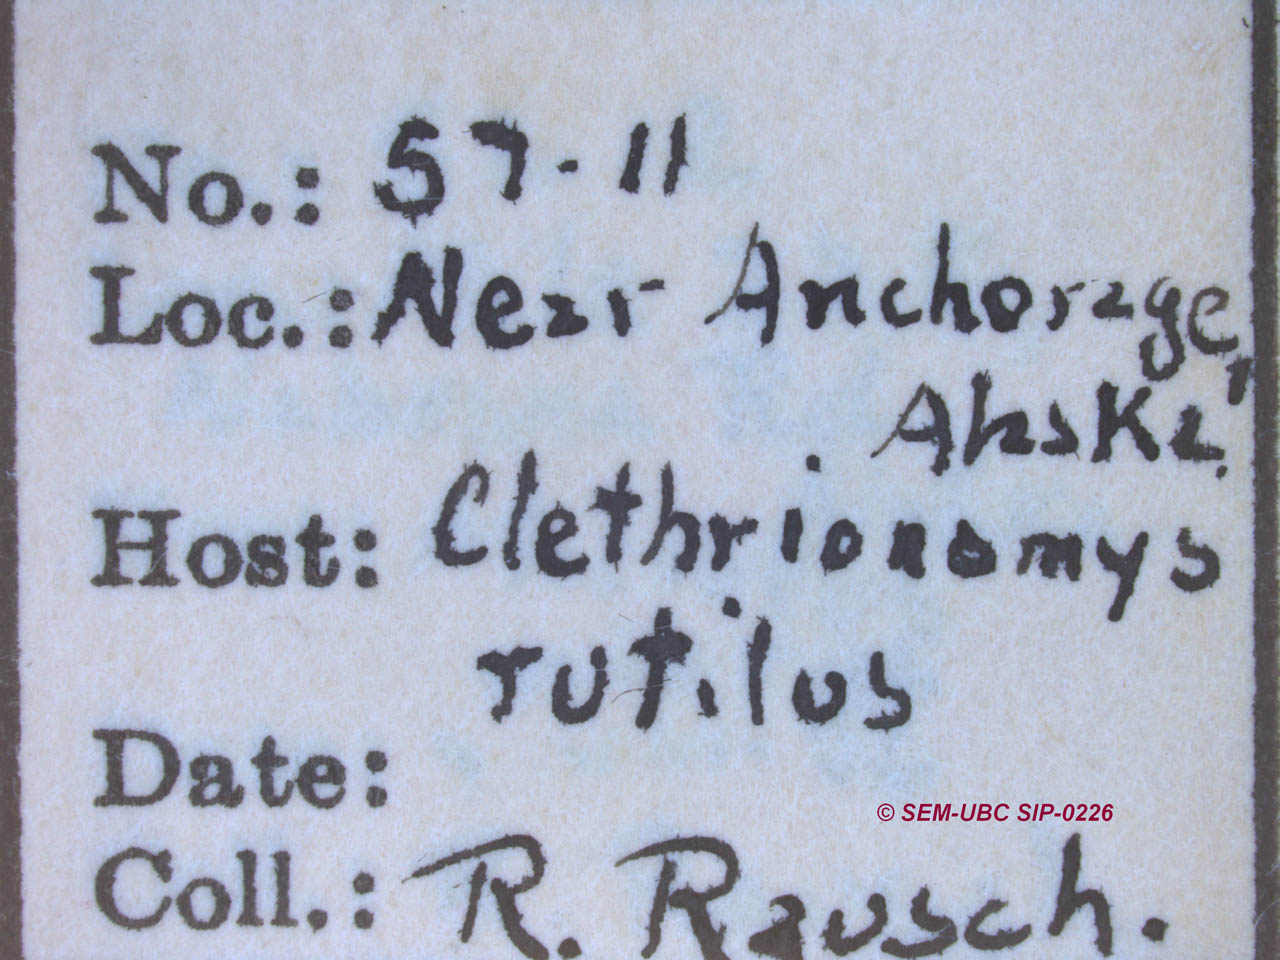 No.: 57-11
Loc.: Near Anchorage,
Alaska.
Host: Clethrionomys
rutilus
Date:
© SEM-UBC SIP-0226
Coll.: R. Rausch.